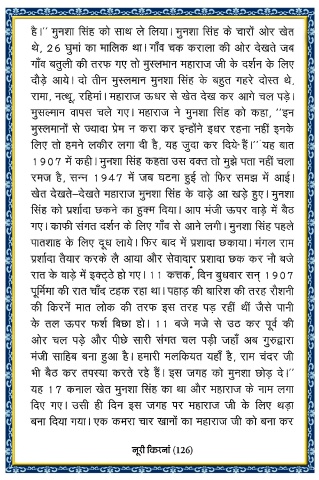 है।" मुनशा सिंह को साथ ले लिया। मुनशा सिंह के चारों ओर खेत
थे, 26 घुमां का मालिक था। गाँव चक कराला की ओर देखते जब
गाँव बतुली की तरफ गए तो मुस्लमान महाराज जी के दर्शन के लिए
दौड़े आये। दो तीन मुस्लमान मुनशा सिंह के बहुत गहरे दोस्त थे,
रामा, नत्थू, रहिमां। महाराज ऊधर से खेत देख कर आगे चल पड़े।
मुसल्मान वापस चले गए। महाराज ने मुनशा सिंह को कहा, "इन
मुस्लमानों से ज्यादा प्रेम न करा कर इन्होंने इधर रहना नहीं इनके
लिए तो हमने लकीर लगा दी है, यह जुदा कर दिये हैं।" यह बात
1907 में कही। मुनशा सिंह कहता उस वक्त तो मुझे पता नहीं चला
रमज है, सन्न 1947 में जब घटना हुई तो फिर समझ में आई।
खेत देखते-देखते महाराज मुनशा सिंह के वाड़े आ खड़े हुए। मुनशा
सिंह को प्रशांदा छकने का हुक्म दिया। आप मंजी ऊपर वाड़े में बैठ
गए। काफी संगत दर्शन के लिए गाँव से आने लगी। मुनशा सिंह पहले
पातशाह के लिए दूध लाये। फिर बाद में प्रशादा छकाया। मंगल राम
प्रशांदा तैयार करके लै आया और सेवादार प्रशादा छक कर नौ बजे
रात के वाड़े में इक्ट्ठे हो गए। 11 कत्तक, दिन बुधवार सन् 1907
पूर्मिमा की रात चाँद टहक रहा था। पहाड़ की बारिश की तरह रौशनी
की किरनें मात लोक की तरफ इस तरह पड़ रहीं थीं जैसे पानी
के तल ऊपर फर्श बिछा हो। 11 बजे मजे से उठ कर पूर्व की
ओर चल पड़े और पीछे सारी संगत चल पड़ी जहाँ अब गुरुद्वारा
मंजी साहिब बना हुआ है। हमारी मलकियत यहाँ है, राम चंदर जी
भी बैठ कर तपस्या करते रहे हैं। इस जगह को मुनशा छोड़ दे।"
यह 17 कनाल खेत मुनशा सिंह का था और महाराज के नाम लगा
दिए गए। उसी ही दिन इस जगह पर महाराज जी के लिए थड़ा
बना दिया गया। एक कमरा चार खानों का महाराज जी को बना कर
नूरी किरनां (126)